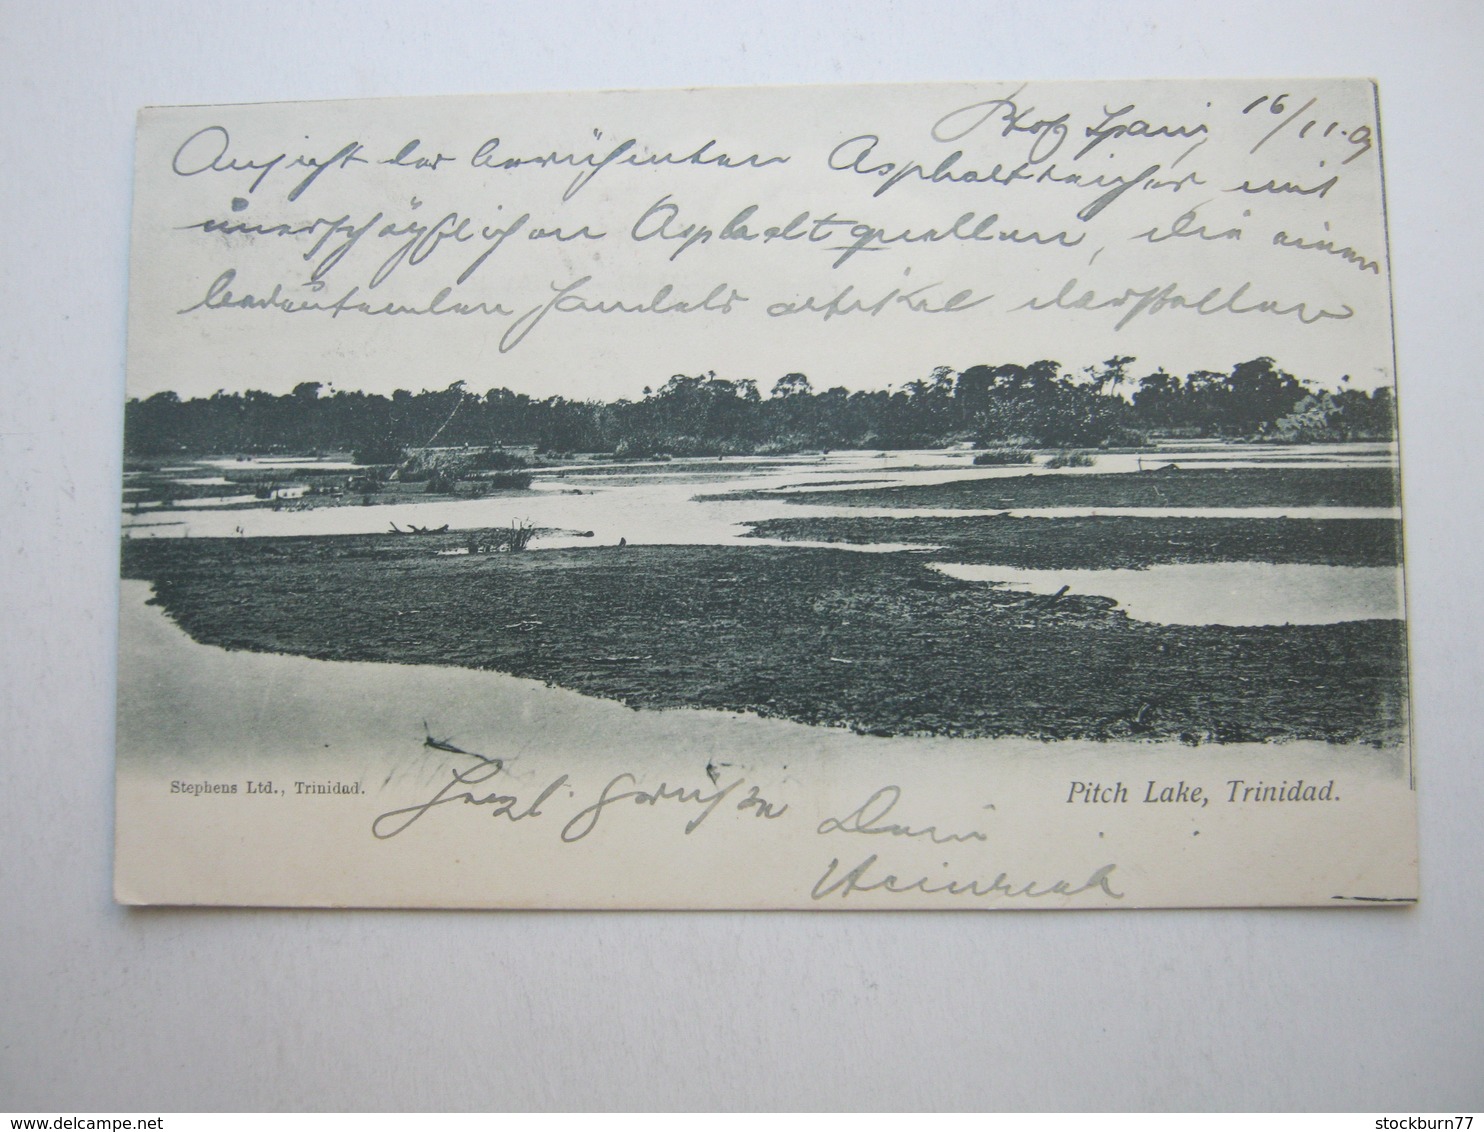 Pt of Spain, 16/11.09
Ansicht des berühmten Asphaltteiches mit
unerschöpflichen Asphaltquellen, die einen
bedeutenden Handelsartikel darstellen
Stephens Ltd., Trinidad.
Pitch Lake, Trinidad.
Herzl. Grüsse Dein
Heinrich
stockburn77